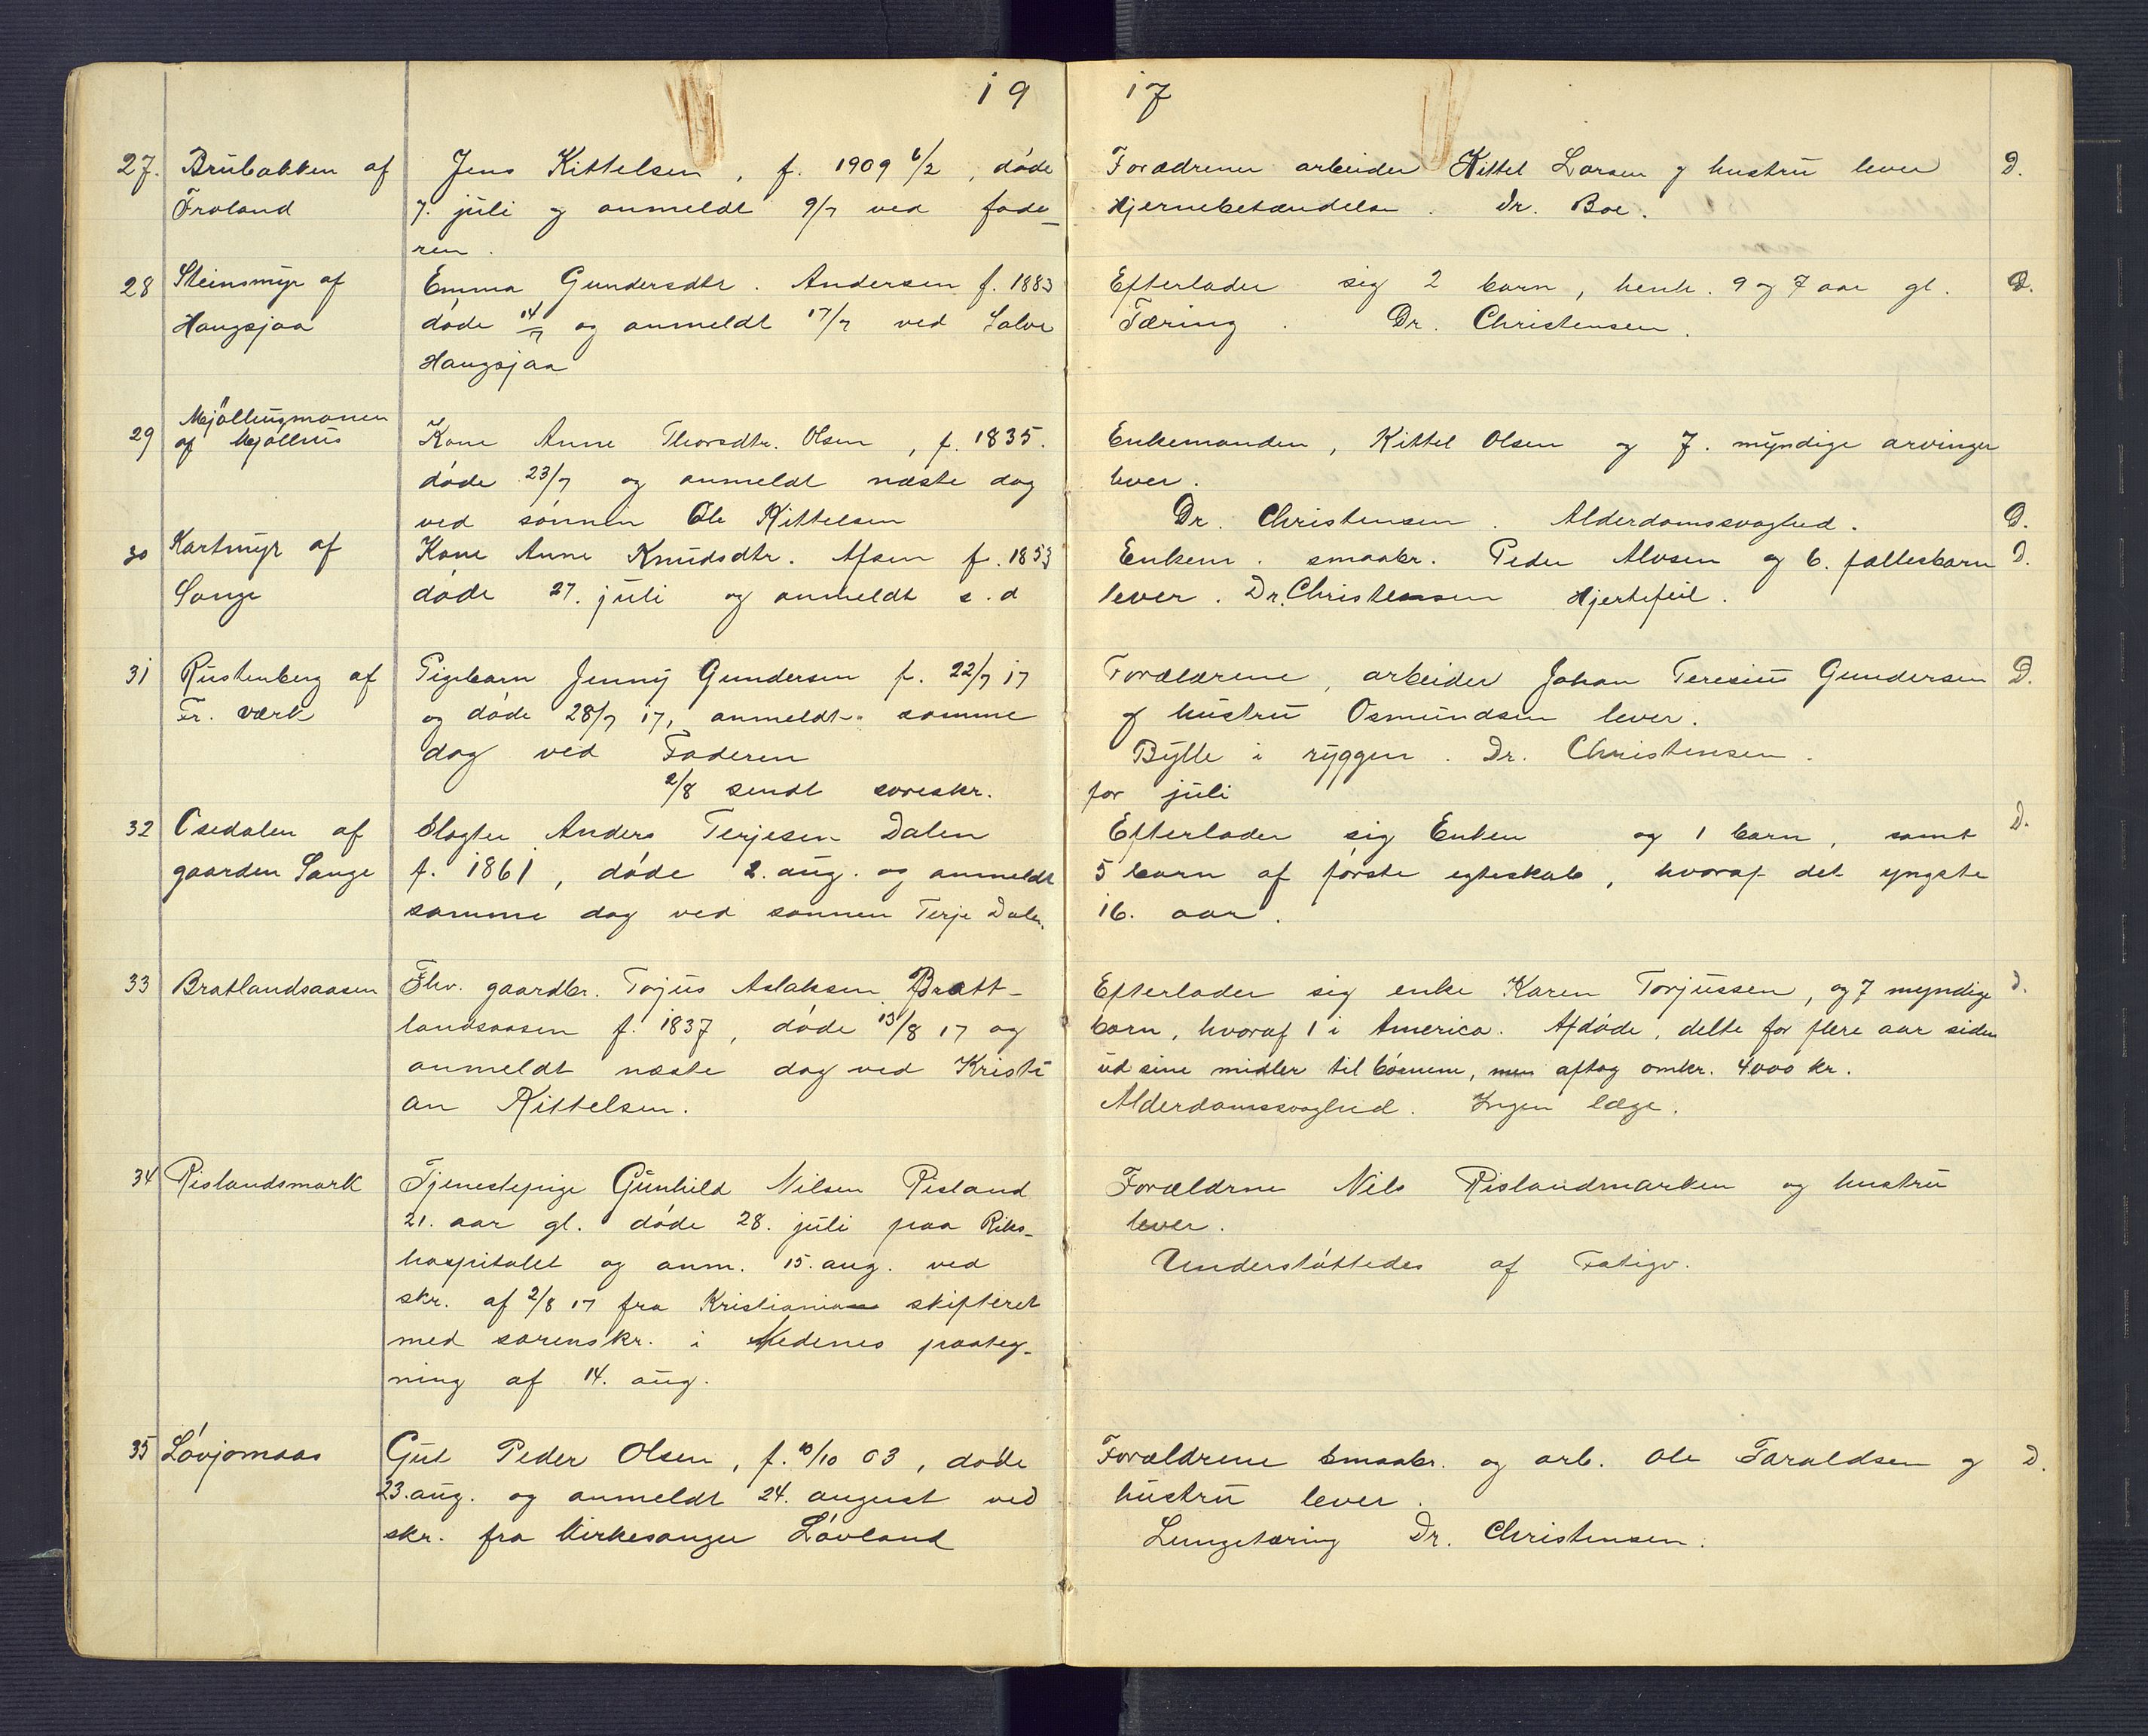 19 17
27. Brubakken af
Froland
Jens Kittelsen, f. 1909 6/2, døde
7. juli og anmeldt 9/7 ved fade-
ren.
Forædrener arbeider Kittel Larsen og hustru lever D.
Hjernebetændelse. Dr. Boe.
28 Steinsmyr af
Haugsjaa
Emma Gundersdtr. Andersen f. 1883
døde 14/7 og anmeldt 17/7 ved Salve
Haugsjaa
Efterlader sig 2 barn, henh. 9 og 7 aar gl. D.
Tæring. Dr. Christensen.
29 Mjøllusmonen
af Mjøllus
Kone Anne Thorsdtr. Olsen, f. 1835.
døde 23/7 og anmeldt næste dag
ved sønnen Ole Kittelsen
Enkemanden, Kittel Olsen og 7. myndige arvinger
lever.
Dr. Christensen. Alderdomssvaghed. D.
30 Kartmyr af
Songe
Kone Anne Knudsdtr. f. 1853
døde 27. juli og anmeldt s. d
Enkem. smaabr. Peder Alvsen og 6. fællesbarn D.
lever. Dr. Christensen Hjertefeil.
31 Rustenberg af
Fr. værk
Pigebarn Jenny Gundersen f. 22/7 17
og døde 28/7 17, anmeldt samme
dag ved Faderen
2/8 sendt soreskr.
Forælærene, arbeider Johan Teresius Gundersen D.
og hustru Osmundsen lever.
Bylle i ryggen. Dr. Christensen.
for juli
32 Osedalen af
gaarden Songe
Slagter Anders Terjesen Dalen
f. 1861, døde 2. aug. og anmeldt
samme dag ved sønnen Terje Dalen.
Efterlader sig Enken og 1 barn, samt D.
5 barn af første egteskab, hvoraf det yngste
16. aar.
33 Bratlandsaasen
Fhv. gaardbr. Tojus Aslaksen Bratt-
landsaasen f. 1837, døde 13/8 17 og
anmeldt næste dag ved Kristi
an Kittelsen.
Efterlader sig enke Karen Torjussen, og 7 myndige D.
barn, hvoraf 1 i America. Afdøde, delte for flere aar siden
ud sine midler til børnene, men aftog omkr. 4000 kr.
Alderdomssvaghed. Ingen læge.
34 Rislandsmark
Tjenestepige Gunhild Nilsen Risland
21. aar gl. døde 28. juli paa Riks-
hospitalet og anm. 15. aug. ved
skr. af 2/8 17 fra Kristiania skifteret
med sorenskr. i Nedenes paateg-
ning af 14. aug.
Forældrne Nils Rislandmarken og hustru
lever.
Understøttedes af Fatigv.
35 Løvjomaas
Gut Peder Olsen, f. 10/10 03, døde
23. aug. og anmeldt 24. august ved
skr. fra kirkesanger Løvland
Forældrene smaabr. og arb. Ole Taraldsen og D.
hustru lever.
Lungetæring Dr. Christensen.